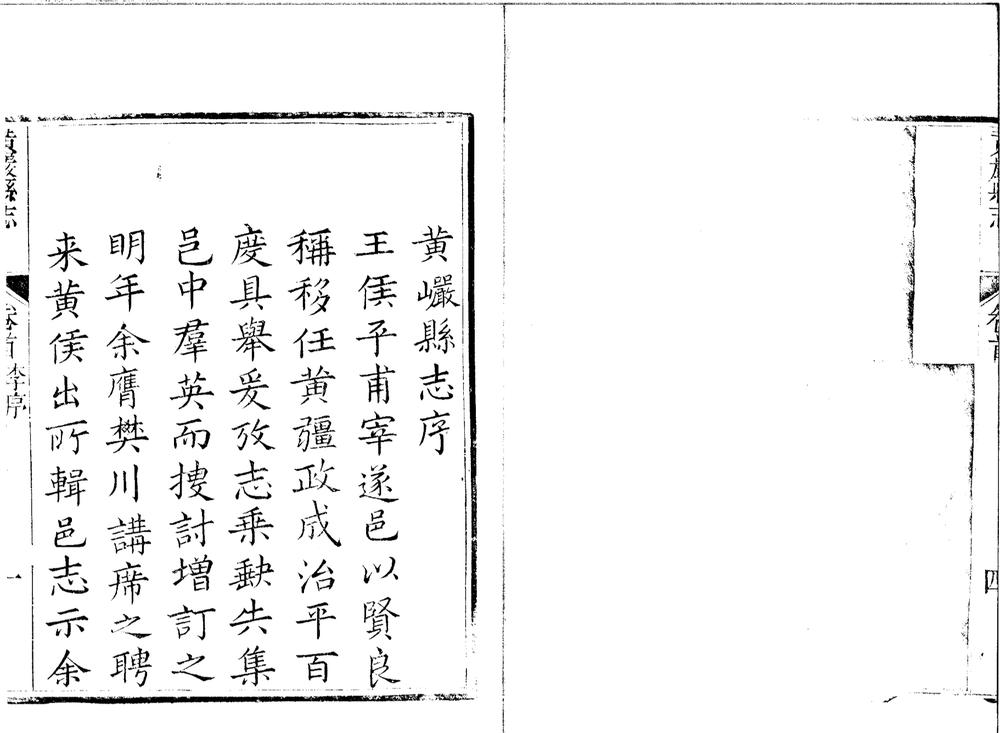 黃巖縣志
卷首
四
黃巗縣志序
王侯平甫宰遂邑以賢良
稱移任黃疆政成治平百
度具舉爰攷志乘缺失集
邑中羣英而搜討增訂之
明年余膺樊川講席之聘
来黃侯出所輯邑志示余
黃巖縣志
卷首 李序
一